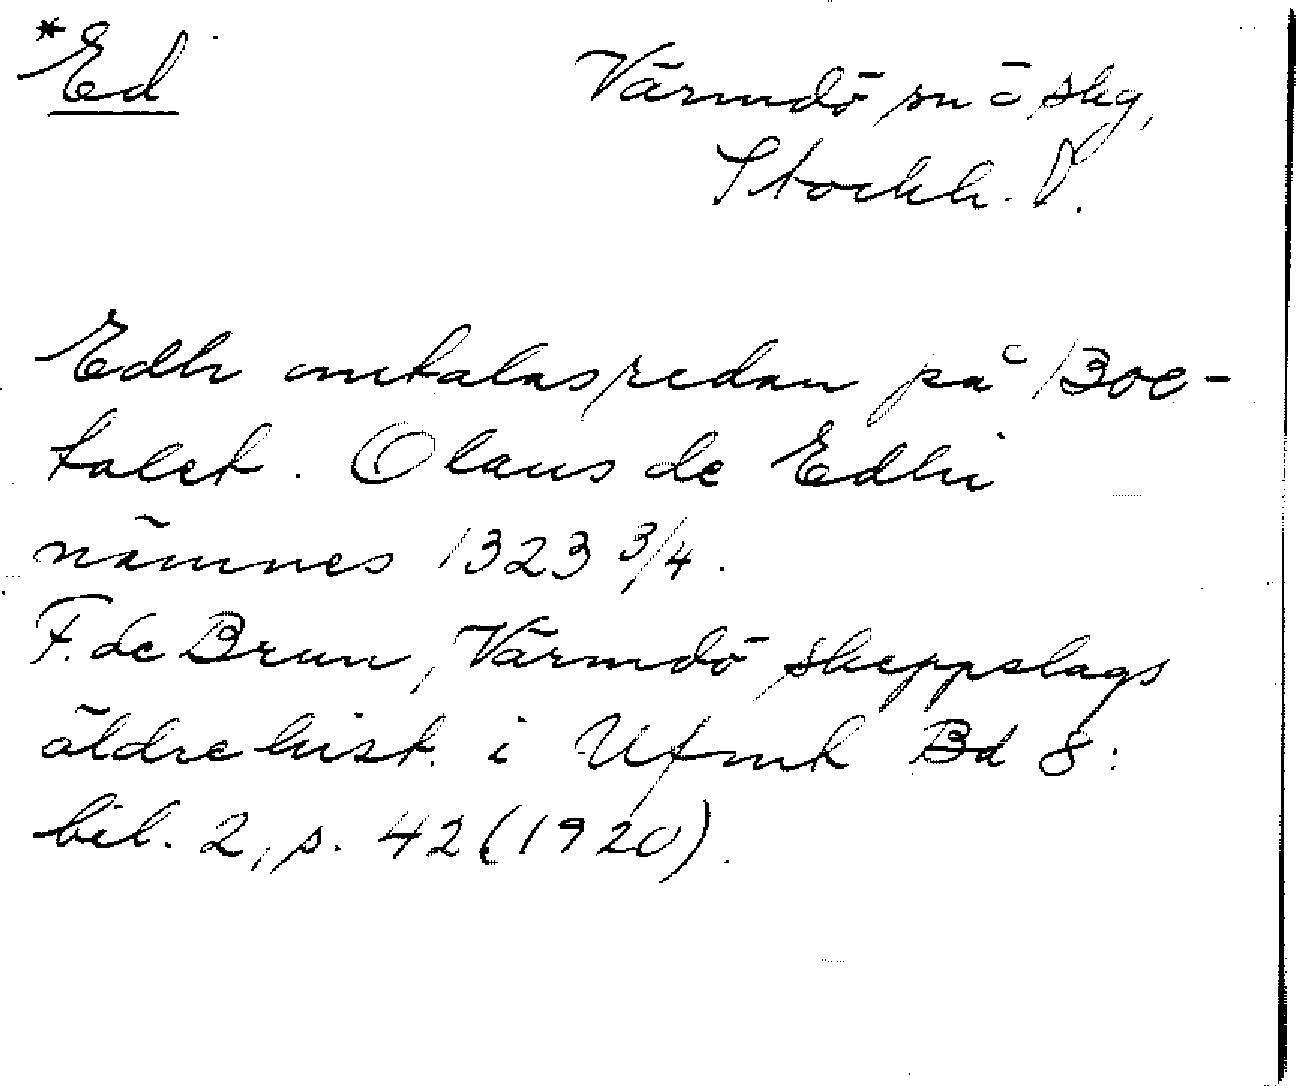 *Ed
Värmdö sn o skg,
Stockh. l.
Edh omtalas redan på 1300-
talet. Olaus de Edhi
nämnes 1323 3/4.
F. de Brun, Värmdö skeppslags
äldre hist. i Ufmt Bd 8:
bil. 2, p. 42 (1920).